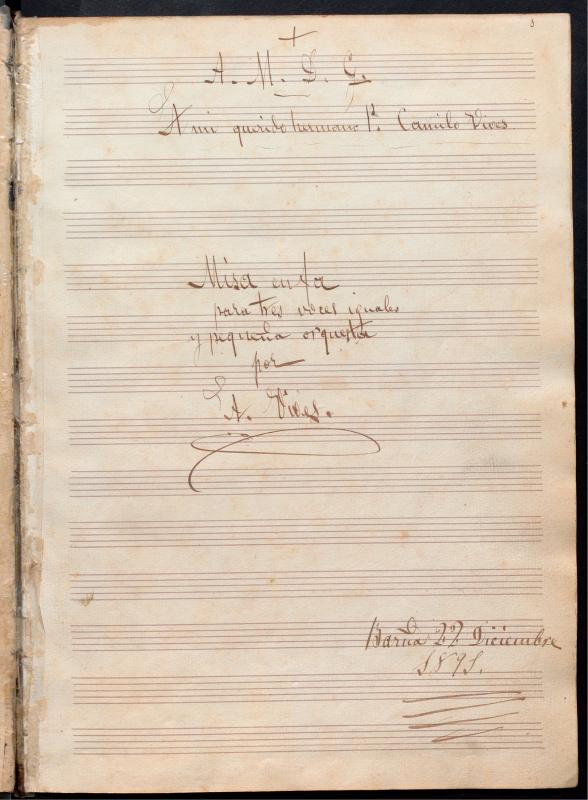 A. M. D. G.
A mi querido hermano P. Camilo Vives
Misa en fa
para tres voces iguales
y pequeña orquesta
por
A. Vives.
Barna 22 Diciembre
1891.